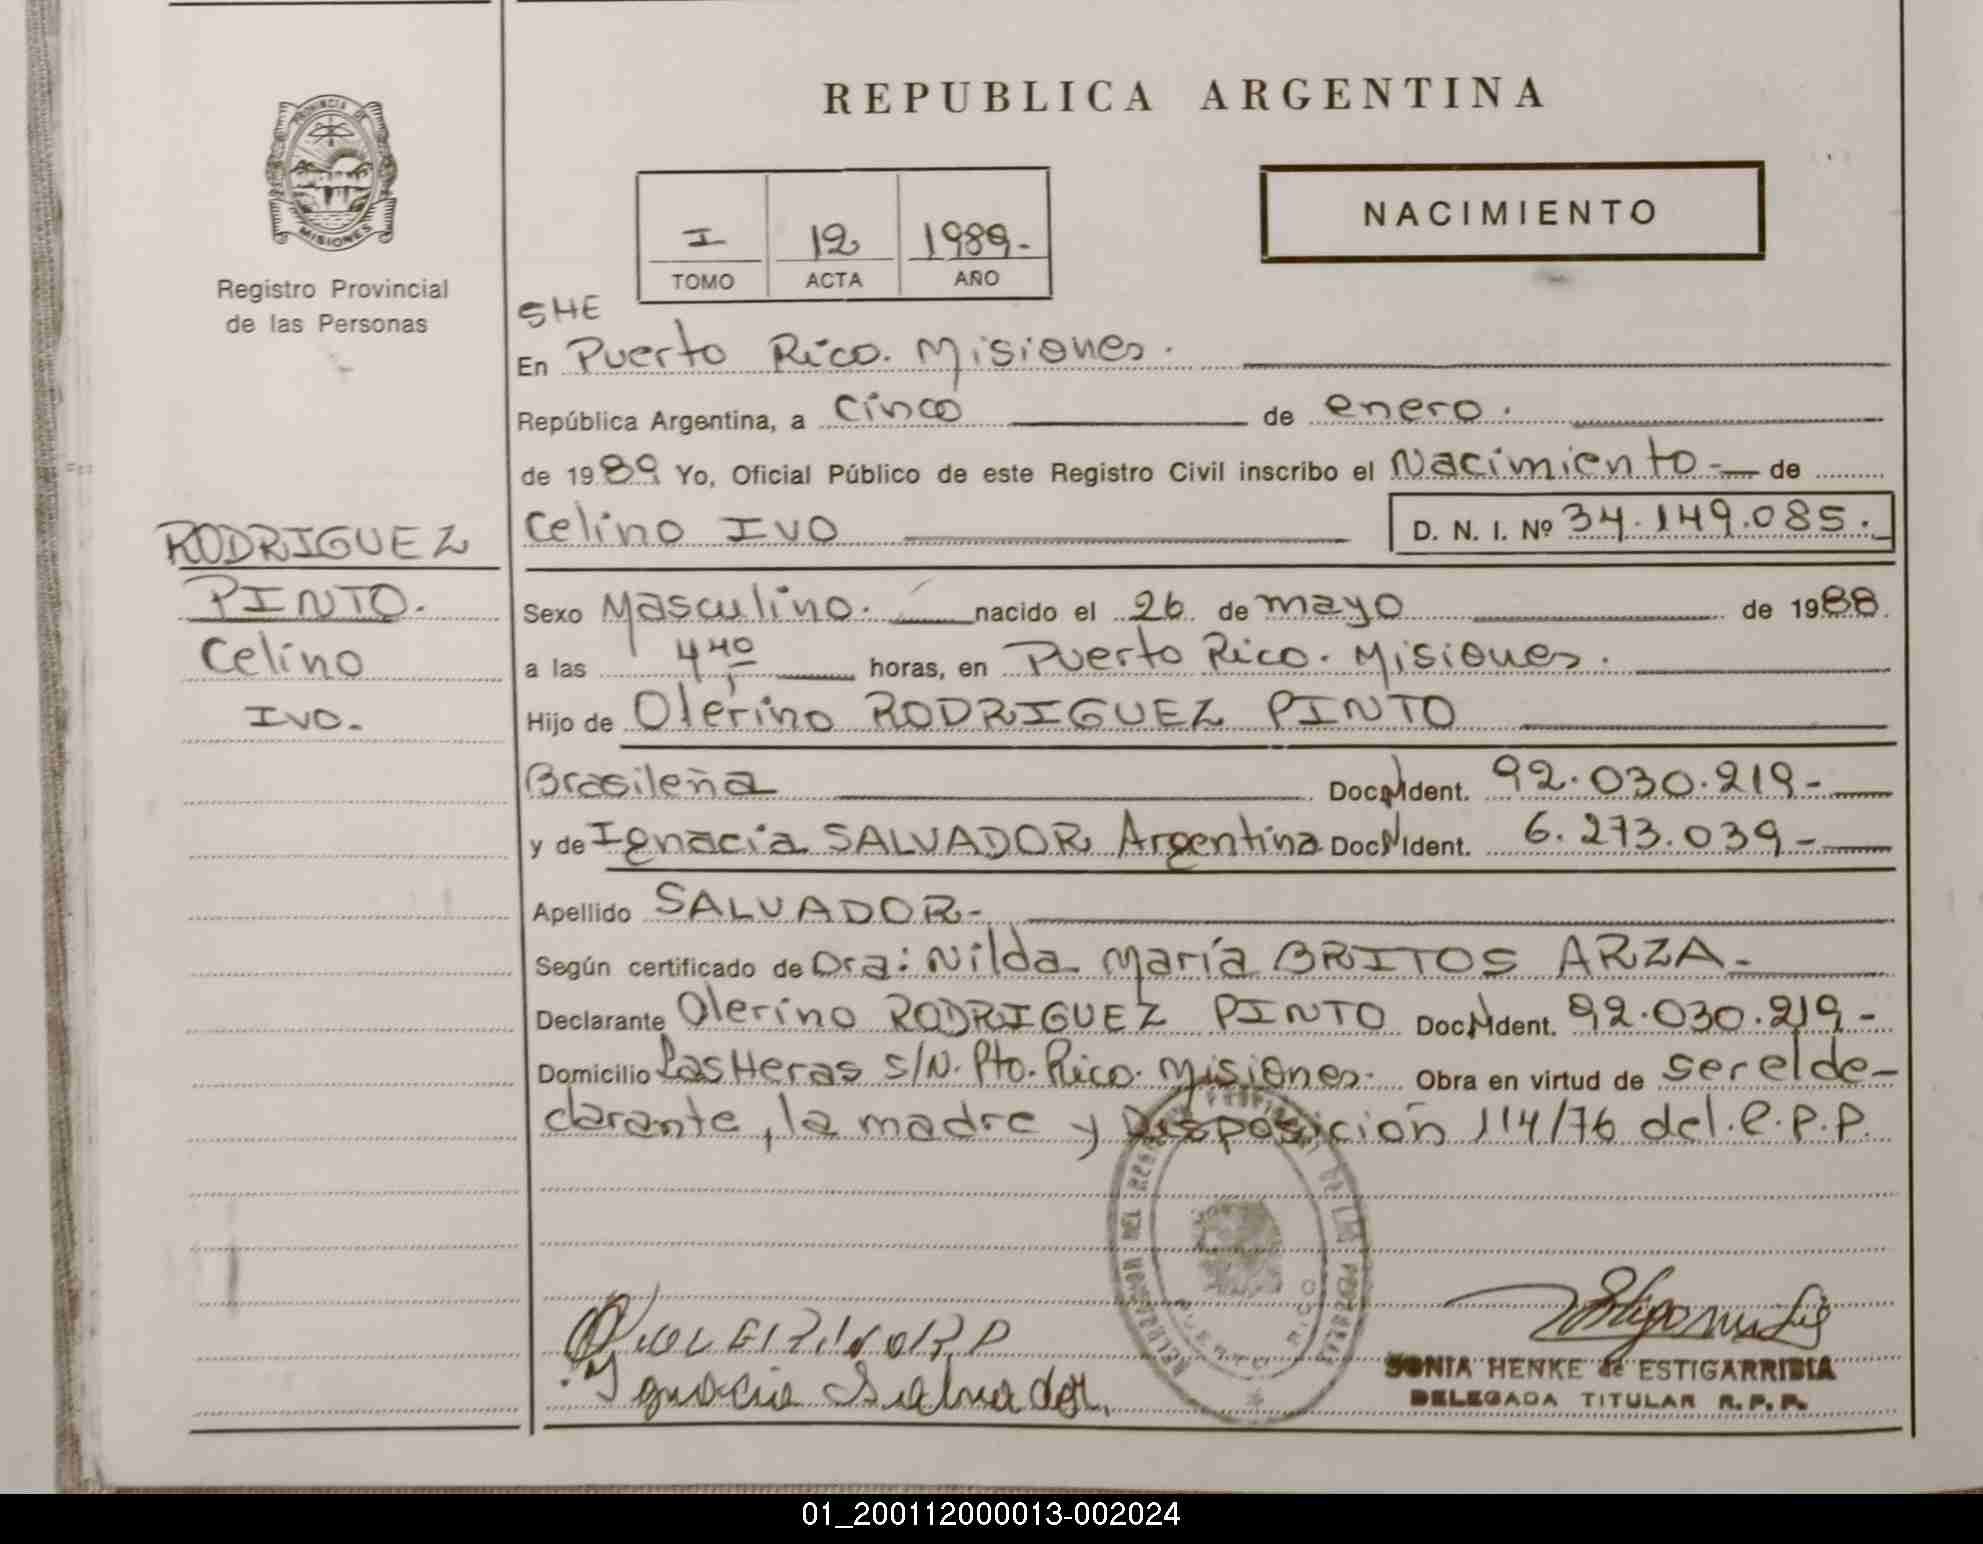 REPUBLICA ARGENTINA
PROVINCIA DE
MISIONES
Registro Provincial
de las Personas
I 12 1989-
TOMO ACTA AÑO
NACIMIENTO
SHE
En Puerto Rico. Misiones.
República Argentina, a cinco de enero.
de 1989 Yo, Oficial Público de este Registro Civil inscribo el Nacimiento- de
Celino IVO D. N. I. Nº 34.149.085.
RODRIGUEZ
PINTO.
Celino
IVO.-
Sexo Masculino. nacido el 26 de mayo de 1988.
a las 4,40 horas, en Puerto Rico. Misiones.
Hijo de Olerino RODRIGUEZ PINTO
Brasileña Doc. N Ident. 92.030.219-
y de Ignacia SALVADOR Argentina Doc N Ident. 6.273.039-
Apellido SALVADOR-
Según certificado de Dra: Nilda María BRITOS ARZA-
Declarante Olerino RODRIGUEZ PINTO Doc N Ident. 92.030.219-
Domicilio Las Heras S/N. Pto. Rico. Misiones. Obra en virtud de ser el de-
clarante, la madre y Disposición 114/76 del.R.P.P.
PUERTO RICO
Ignacia Salvador
SONIA HENKE de ESTIGARRIBIA
DELEGADA TITULAR R.P.P.
01_200112000013-002024